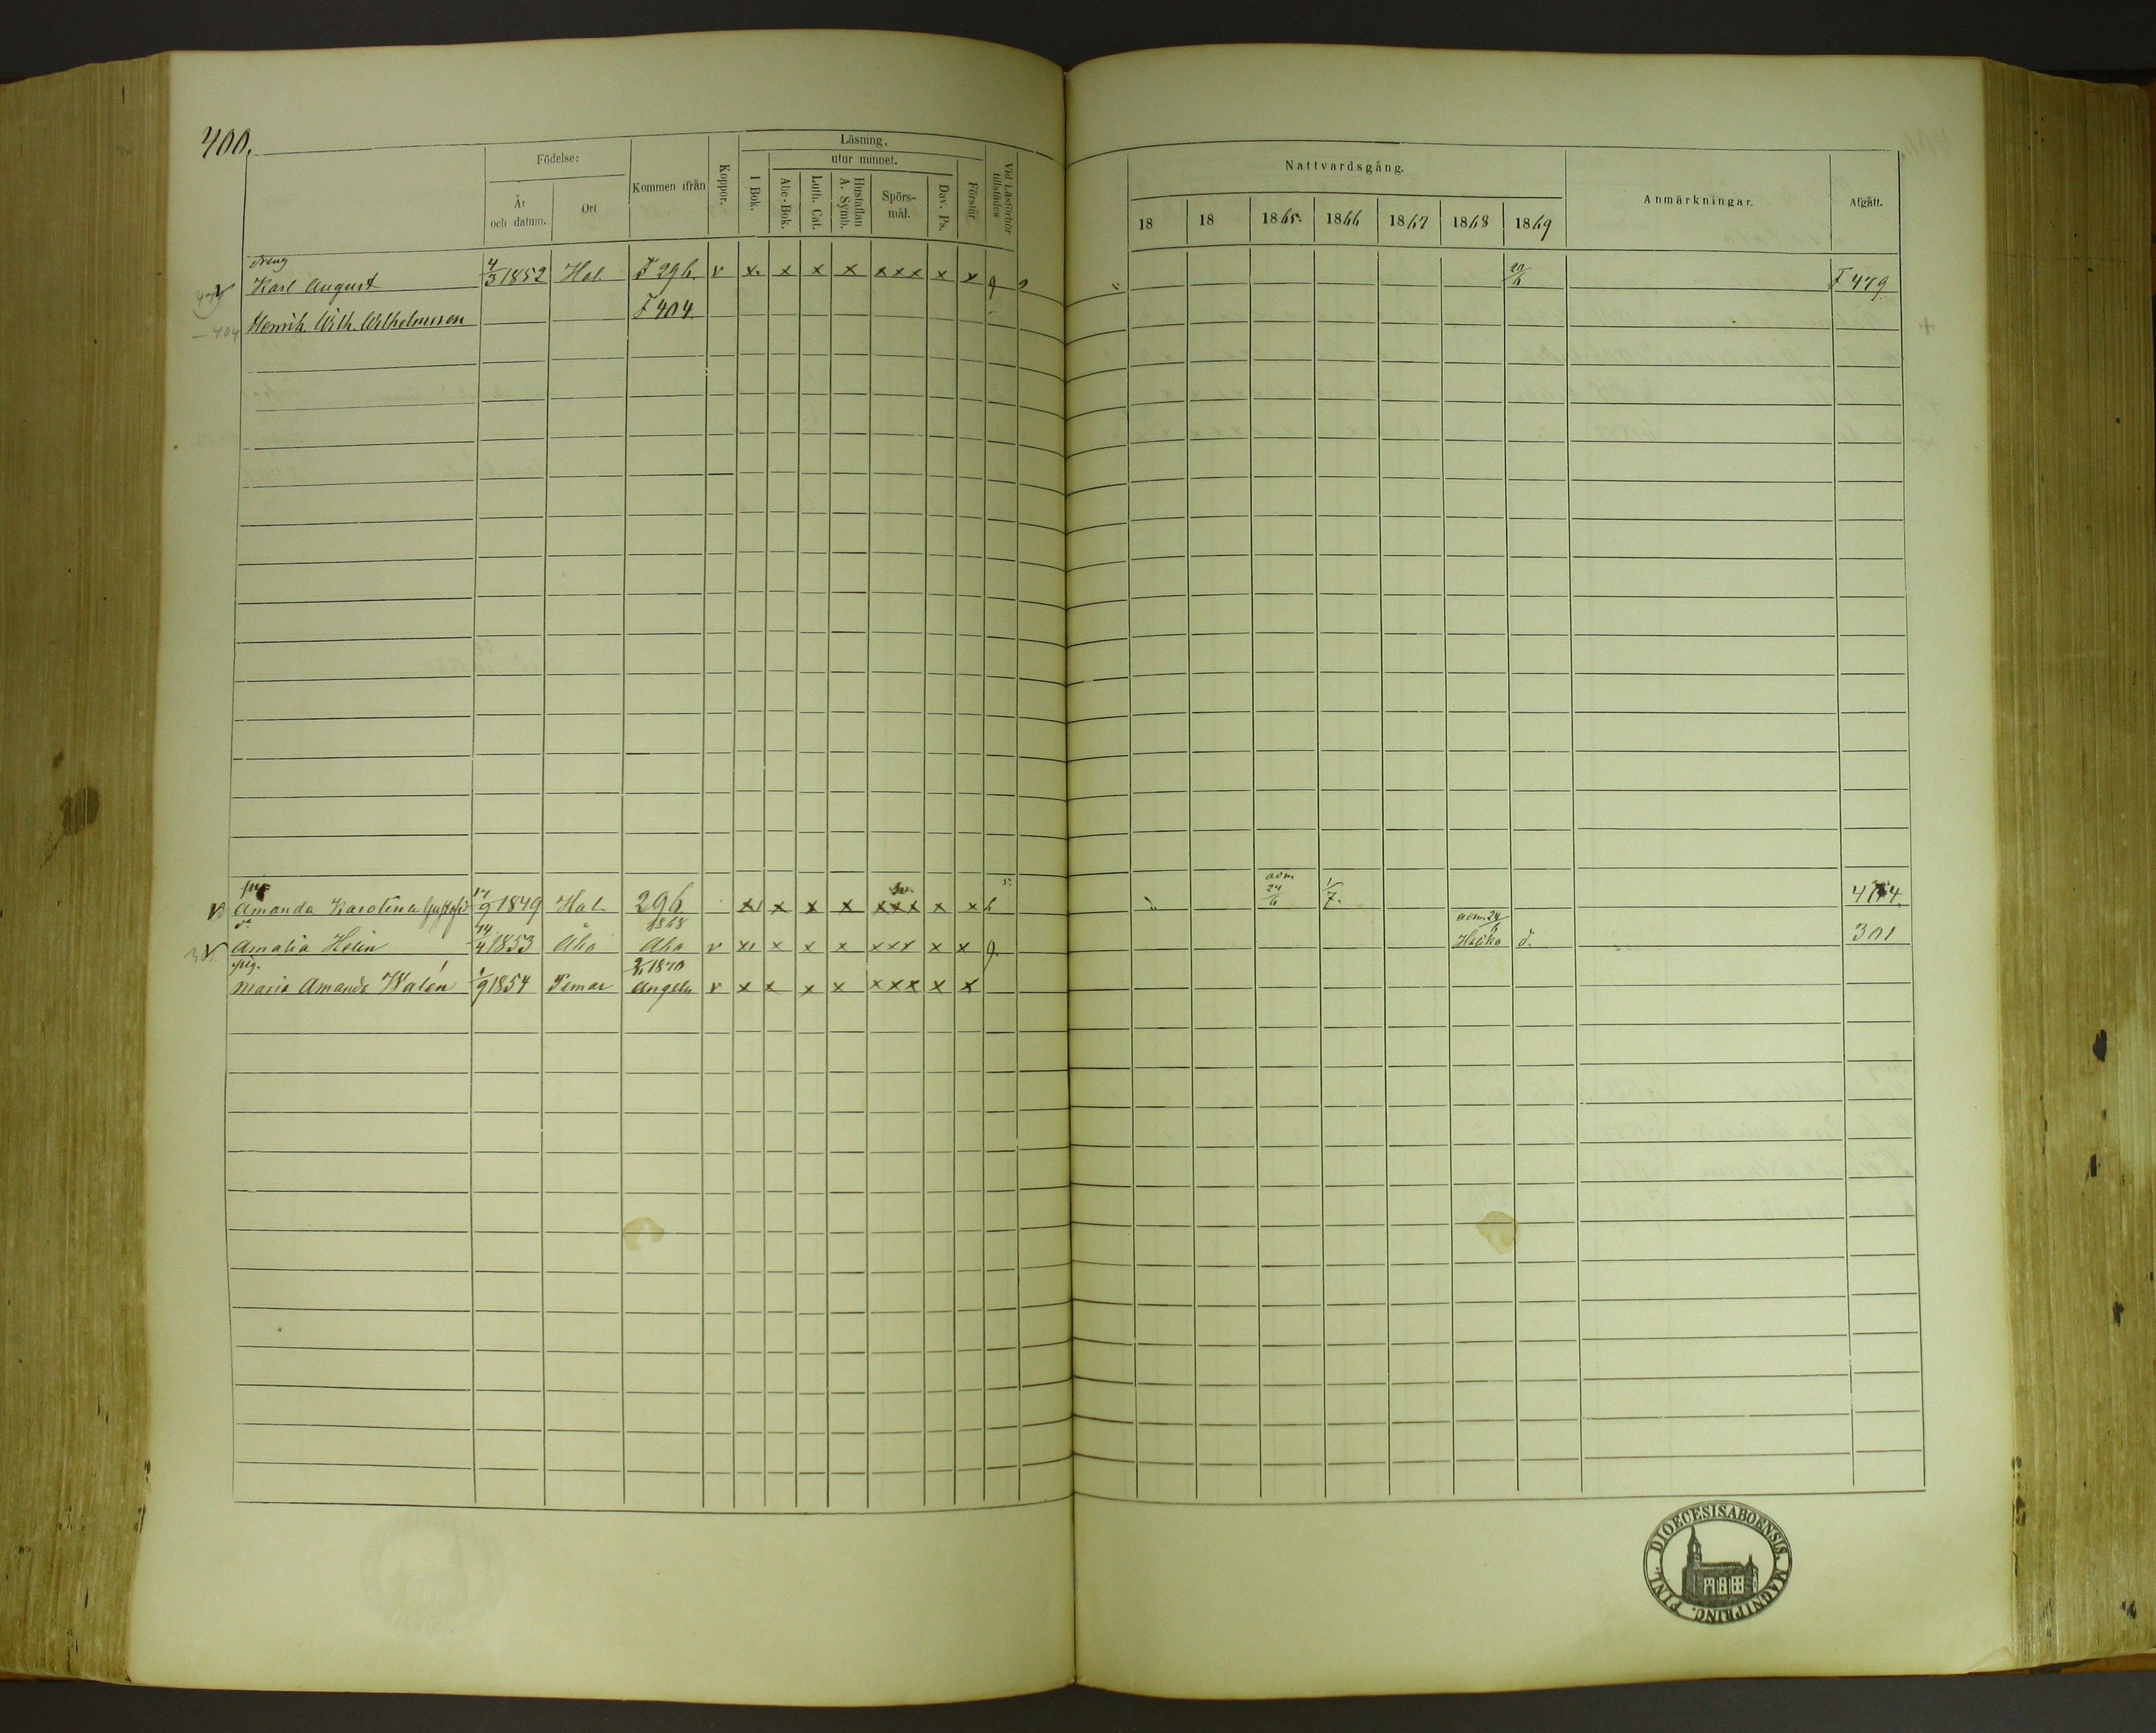 400.
Födelse:
År och datum.
Ort
Kommen ifrån
Koppor.
Läsning.
I Bok.
utur minnet.
Abc-Bok.
Luth. Cat.
Hustaflan A. Symb.
Spörs-mål.
Dav. Ps.
Förstår
Vid Läsförhör tillstädes
Nattvardsgång.
18 18 1865 1866 1867 1868 1869
Anmärkningar.
Afgått.
Dreng
479 v Karl August 4/3 1852 Hal. F 296. v x. x x x xxx x x g 20/6 F 479
- 404 Henrik Wilh. Wilhelmsson F 404.
pig
v Amanda Karolina Gustafsd 17/9 1849 Hal. 296 x x x x xxx x x adm 24/6 1/7.
v Amalia Helin 14/4 1853 Åbo 1868 Åbo v x x x x xxx x x g. adm. 24/6 Haliko d. 301
pig.
Maria Amanda Walén 1/9 1854 Pemar 1870 Angeln v x x x x xxx x x
DIOECESIS ABOENSIS. MAGNI PRINC. FINL.